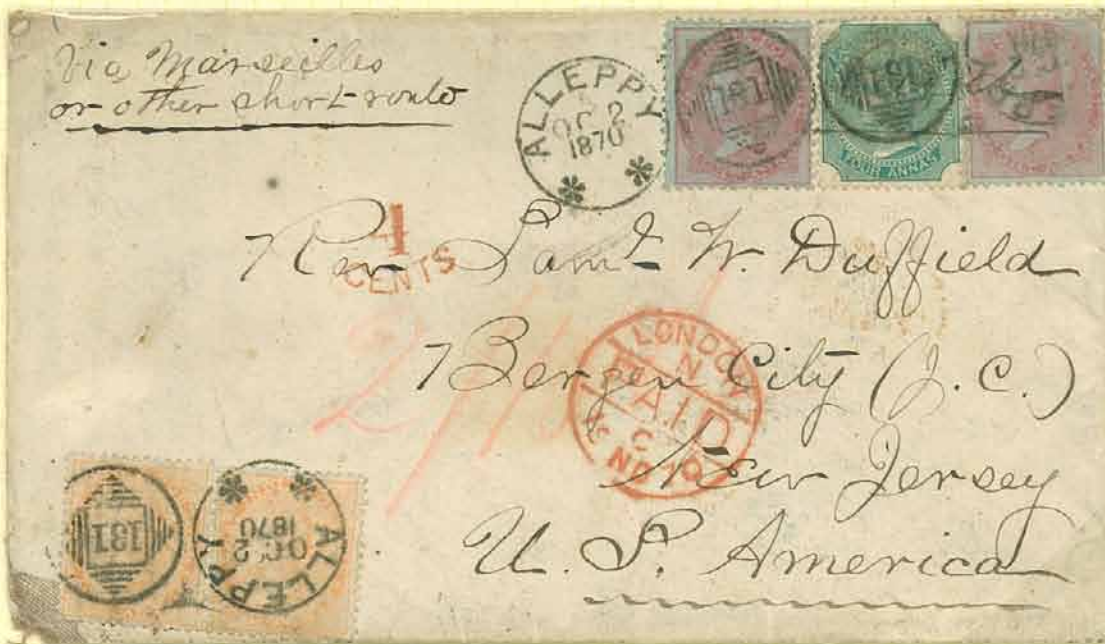 Via Marseilles
or other short route
ALLEPPY
OC 2
1870
181
FOUR ANNAS
4
CENTS
Rev Saml W. Duffield
Bergen City (J. C.)
New Jersey
U. S. America
LONDON
PAID
181
ALLEPPY
OC 2
1870